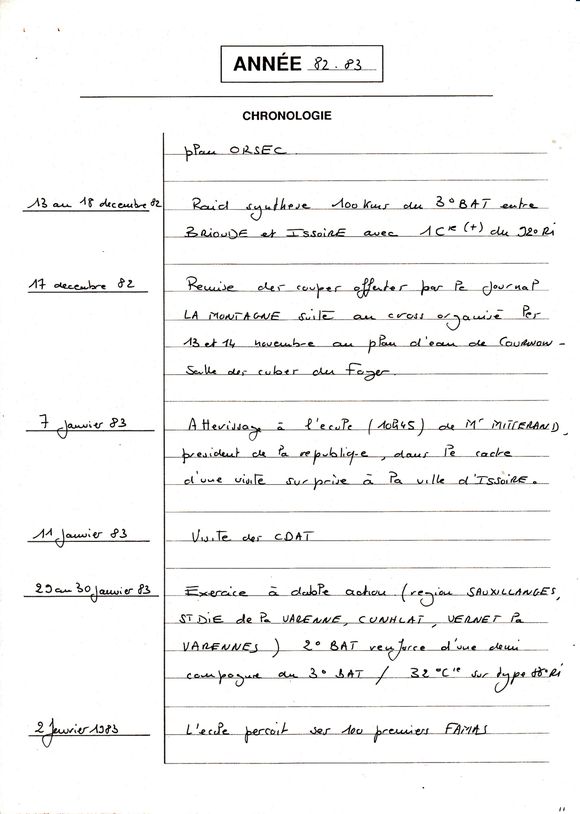 ANNÉE 82.83
CHRONOLOGIE
plan ORSEC
13 au 18 decembre 82 Raid synthese 100 Kms du 3°BAT entre
BRIOUDE et ISSOIRE avec 1 Cie (+) du RI
17 decembre 82 Remise des coupes offertes par le journal
LA MONTAGNE suite au cross organisé les
13 et 14 novembre au plan d'eau de COURNON -
Salle des cubes du Foyer.
7 Janvier 83 Atterissage à l'ecole (10h45) de Mr MITTERAND,
president de la republique, dans le cadre
d'une visite surprise à la ville d'ISSOIRE.
11 Janvier 83 Visite des CDAT
29 au 30 Janvier 83 Exercice à double action (region SAUXILLANGES,
ST DIE de la VARENNE, CUNHLAT, VERNET la
VARENNES) 2° BAT renforce d'une demi
compagnie du 3° BAT / 32°Cie sur type RI
2 Janvier 1983 L'ecole percoit ses 100 premiers FAMAS